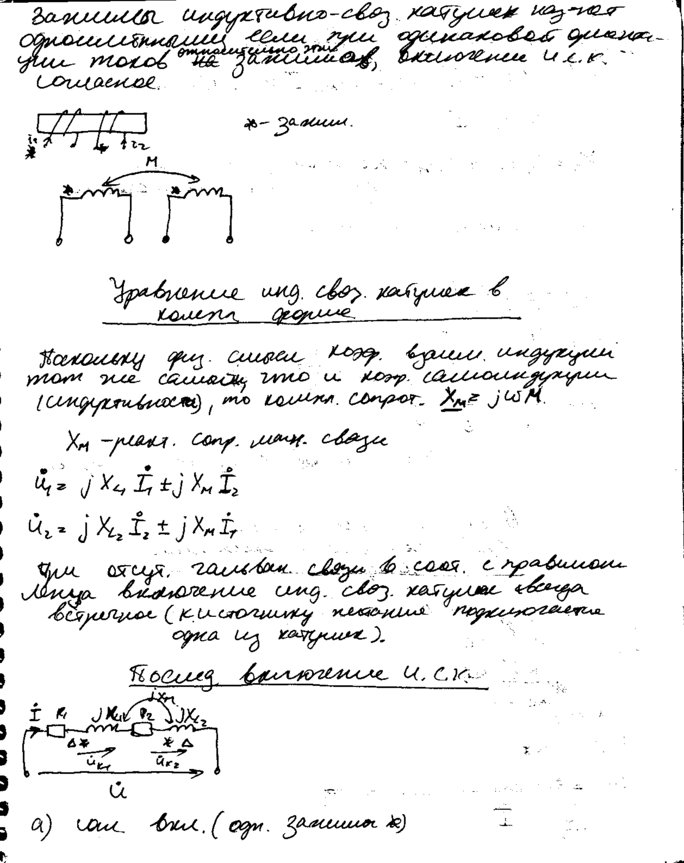 Зажимы индуктивно-своз. катушек наз-ют
одноимёнными если при одинаковой ориента-
ции токов относительно этих зажимов, включении и.с.к.
согласное.
* - зажим.
i₁ i₂
*
M
* *
Уравнение инд. своз. катушек в
компл форме
Поскольку физ. смысл коэф. взаим. индукции
тот же самый, что и коэф. самоиндукции
(индуктивности), то компл. сопрот. X_M = jωM.
X_M - реакт. сопр. маг. связи
U̇₁ = j X_L₁ İ₁ ± j X_M İ₂
U̇₂ = j X_L₂ İ₂ ± j X_M İ₁
При отсут. гальван связи в соот. с правилом
Ленца включение инд. своз. катушек всегда
встречное (к источнику питание подключается
одна из катушек).
Послед включение и.с.к.
jX_M
İ R₁ jX_L₁ R₂ jX_L₂
Δ * * Δ
U̇_K₁ U̇_K₂
U̇
а) сог вкл. (одн. зажимы *)